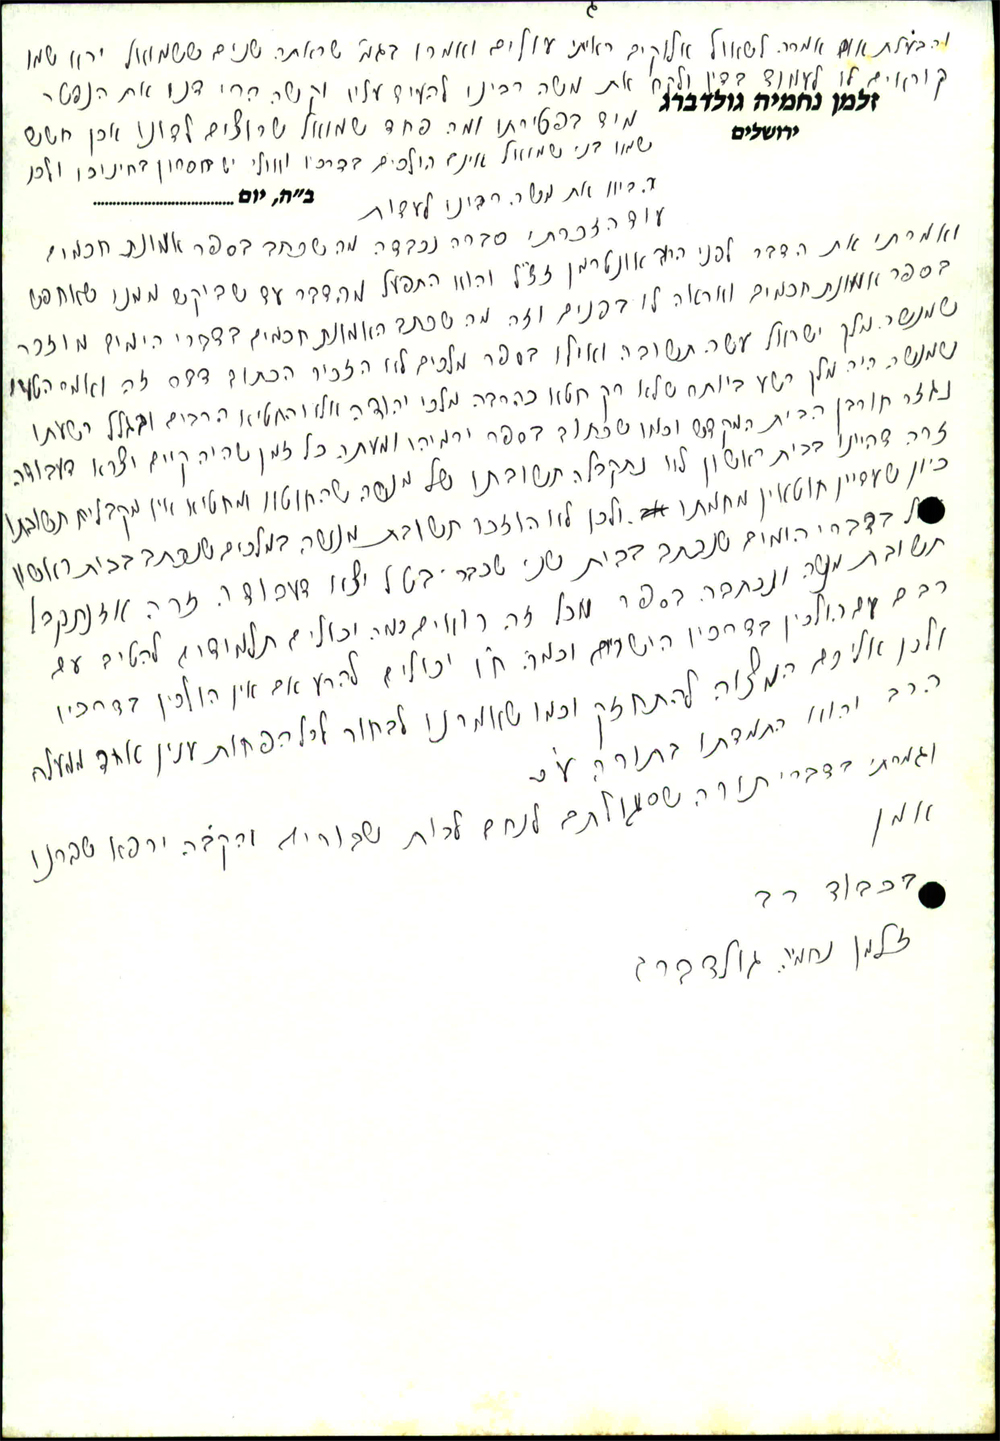 ג
ובעלת אוב אמרה לשאול אלוקים ראיתי עולים ואמרו בגמ' שראתה שנים ששמואל ירא שמו
קוראים לו לעמוד בדין ולקח את משה רבינו להעיד עליו וקשה הרי דנו את הנפטר
זלמן נחמיה גולדברג
ירושלים
מיד בפטירתו ומה פחד שמואל שרוצים לדונו אכן חשש
שמו בני שמואל אינם הולכים בדרכיו ואולי יש חסרון בחינוכו ולכן
ב"ה, יום
הביא את משה רבינו לעדות
עוד הזכרתי סברה נכבדה מה שכתב בספר אמונת חכמים
ואמרתי את הדבר לפני הרב אונטרמן זצ"ל והוא התפעל מהדבר עד שביקש ממנו שאחפש
בספר אמונת חכמים ואראה לו בפנים וזה מה שכתב האמונת חכמים בדברי הימים מוזכר
שמנשה מלך ישראל עשה תשובה ואילו בספר מלכים לא הזכיר הכתוב דבר זה ואמר הטעם
שמנשה היה מלך רשע ביותר שלא רק חטא כהרבה מלכי יהודה אלא והחטיא הרבים ובגלל רשעתו
נגזר חורבן הבית המקדש וכמו שכתוב בספר ירמיהו ומעתה כל זמן שהיה קיים יצרא דעבודה
זרה דהיינו בבית ראשון לא נתקבלה תשובתו של מנשה שהחוטא ומחטיא אין מקבלים תשובתו
כיון שעדיין חוטאין מחמתו ולכן לא הוזכר תשובת מנשה במלכים שנכתב בבית ראשון
אבל בדברי הימים שנכתב בבית שני שכבר בטל יצרא דעבודה זרה אז נתקבל
תשובת מנשה ונכתבה בספר מכל זה רואים כמה יכולים תלמודים להטיב עם
רבם עם הולכין בדרכיו הישרים וכמה ח"ו יכולים להרע אם אין הולכין בדרכיו
ולכן אליכם המצוה להתחזק וכמו שאמרנו לבחור לכל הפחות ענין אחד ממעלה
הרב והוא התמדתו בתורה
וגמרתי בדברי תורה שסגולתם לנחם לבות שבורים והקב"ה ירפא שברנו
אמן
בכבוד רב
זלמן נחמיה גולדברג